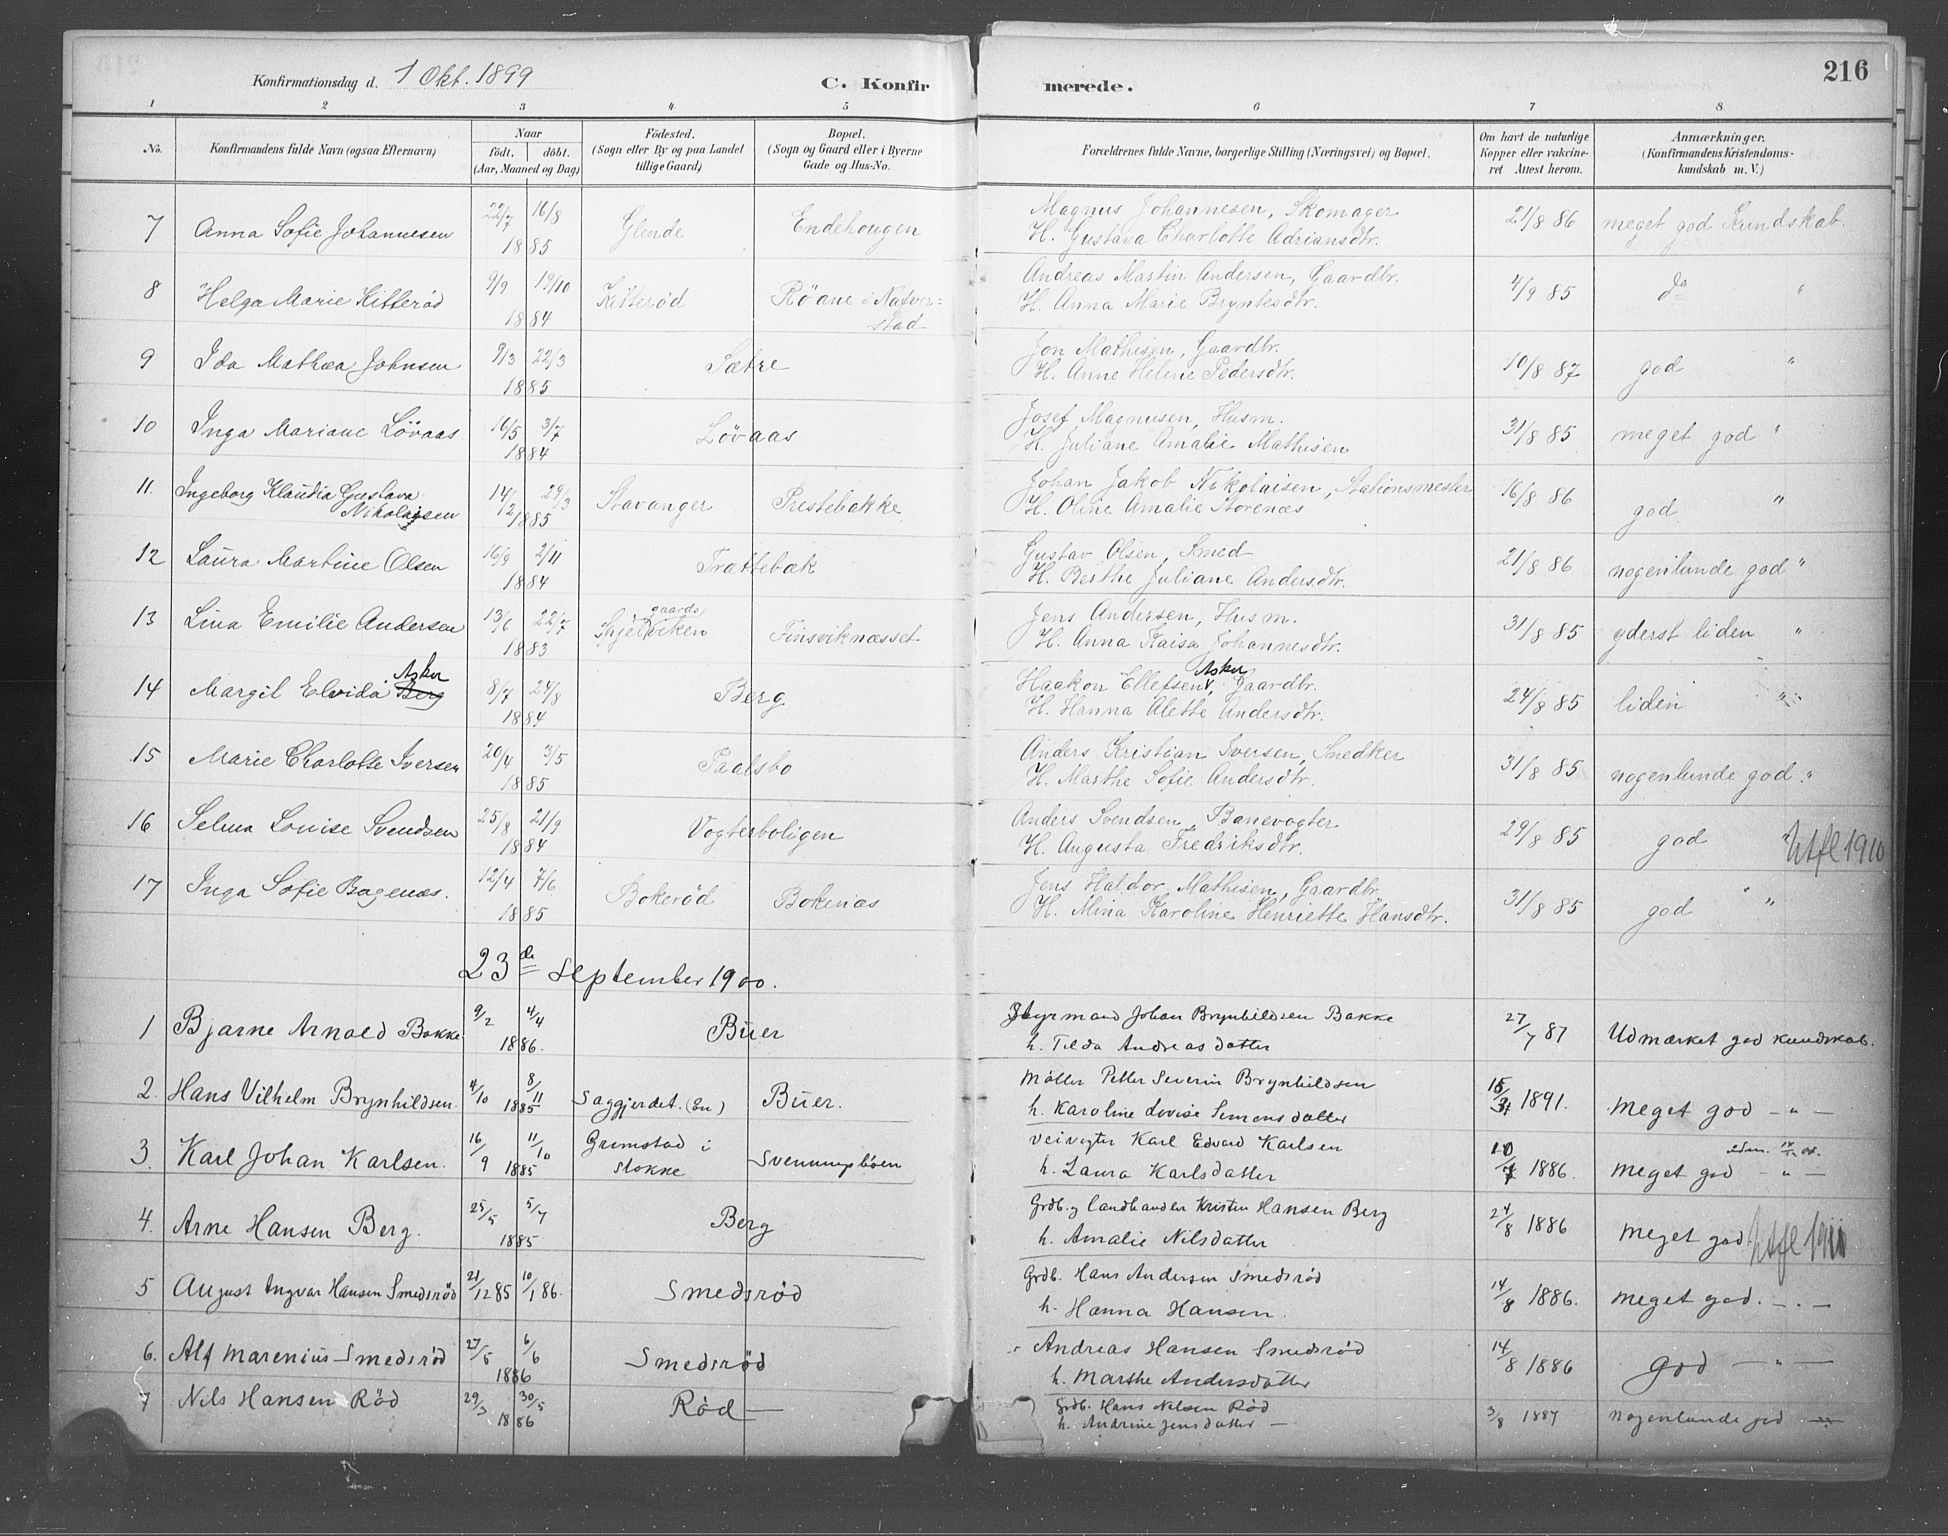 Konfirmationsdag d. 1 Okt. 1899
C. Konfir merede.
216
1 2 3 4 5 6 7 8
No. Konfirmandens fulde Navn (ogsaa Efternavn) Naar födt. döbt. (Aar, Maaned og Dag) Födested. (Sogn eller By og paa Landet tillige Gaard) Bopæl. (Sogn og Gaard eller i Byerne Gade og Hus-No. Forældrenes fulde Navne, borgerlige Stilling (Næringsvei) og Bopæl. Om havt de naturlige Kopper eller vakcineret Attest herom. Anmærkninger. (Konfirmandens Kristendomskundskab m. V.)
7 Anna Sofie Johannesen 22/7 16/8 1885 Glende Endehougen Magnus Johannesen, Skomager 21/8 86 meget god Kundskab.
H. Gustava Charlotte Adriansdtr.
8 Helga Marie Kitteröd 9/9 19/10 1884 Kitteröd Röane i Naverstad Andreas Martin Andersen, Gaardbr. 4/9 85 do "
H. Anna Marie Bryntesdtr.
9 Ida Mathea Johnsen 9/3 22/3 1885 Sætre Jon Mathisen, Gaardbr. 10/8 87 god "
H. Anne Helene Pedersdtr.
10 Inga Mariane Lövaas 16/5 3/7 1884 Lövaas Josef Magnusen, Husm. 31/8 85 meget god "
H. Juliane Amalie Mathisen
11. Ingeborg Klaudia Gustava Nikolaisen 14/2 29/3 1885 Stavanger Prestebakke Johan Jakob Nikolaisen, Stationsmester 16/8 86 god "
H. Oline Amalie Storenæs
12 Laura Martine Olsen 16/9 2/11 1884 Trættebæk Gustav Olsen, Smed 21/8 86 nogenlunde god "
H. Berthe Juliane Andersdtr.
13 Lina Emilie Andersen 13/6 22/7 1883 Skjelgaardsviken Finsviknæsset Jens Andersen, Husm. 31/8 85 yderst liden "
H. Anna Kaisa Johannesdtr.
14 Margit Elvida Berg Asker 8/7 24/8 1884 Berg Haakon Ellefsen Asker, Gaardbr. 24/8 85 liden "
H. Hanna Alette Andersdtr.
15 Marie Charlotte Iversen 20/4 3/5 1885 Paalsbo Anders Kristian Iversen, Snedker 31/8 85 nogenlunde god "
H. Marthe Sofie Andersdtr.
16 Selma Louise Svendsen 25/8 21/9 1884 Vogterboligen Anders Svendsen, Banevogter 29/8 85 god " Utfl 1910
H. Augusta Fredriksdtr.
17 Inga Sofie Bogenæs. 12/4 7/6 1885 Bokeröd Bokenæs Jens Haldor Mathisen, Gaardbr. 31/8 85 god "
H. Mina Karoline Henriette Hansdtr.
23de September 1900.
1 Bjarne Arnold Bakke 9/2 4/4 1886. Buer Styrmand Johan Brynhildsen Bakke 27/7 87 Udmærket god kundskab.
h. Tilda Andreasdatter
2. Hans Vilhelm Brynhildsen. 4/10 8/11 1885 Saggjerdet. (En) Buer. Møller Petter Severin Brynhildsen 15/3 1891. meget god — " —
h. Karoline Lovise Simensdatter
3. Karl Johan Karlsen. 16/9 11/10 1885 Grimstad i Stokke Svenungsböen Veivogter Karl Edvard Karlsen 10/7 1886. meget god — " —
h. Laura Karlsdatter
4. Arne Hansen Berg. 25/5 5/7 1885 Berg Grdb. og landhandler Kristen Hansen Berg 24/8 1886 meget god Utfl 1911
h. Amalie Nilsdatter
5 August Ingvar Hansen Smedsröd 21/12 85 10/1 86. Smedsröd Grdb. Hans Andersen Smedsröd 14/8 1886. meget god. — . —
h. Hanna Hansen.
6. Alf Marenius Smedsröd 27/5 6/6 1886 Smedsröd Andreas Hansen Smedsröd 14/8 1886 god — " —
h. Marthe Andersdatter
7 Nils Hansen Röd 29/3 30/5 1886 Röd — Grdb. Hans Nilsen Röd 3/8 1887 nogenlunde god — " —
h. Andrine Jensdatter —